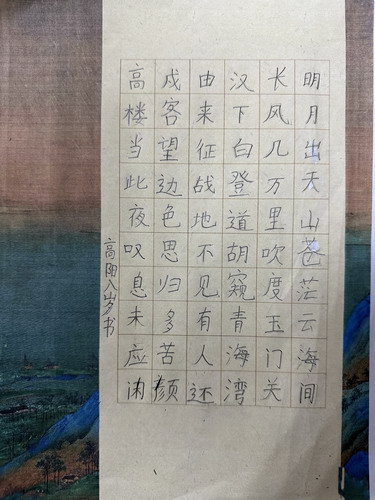 明月出天山苍茫云海间
长风几万里吹度玉门关
汉下白登道胡窥青海湾
由来征战地不见有人还
戍客望边色思归多苦颜
高楼当此夜叹息未应闲
高阳八岁书